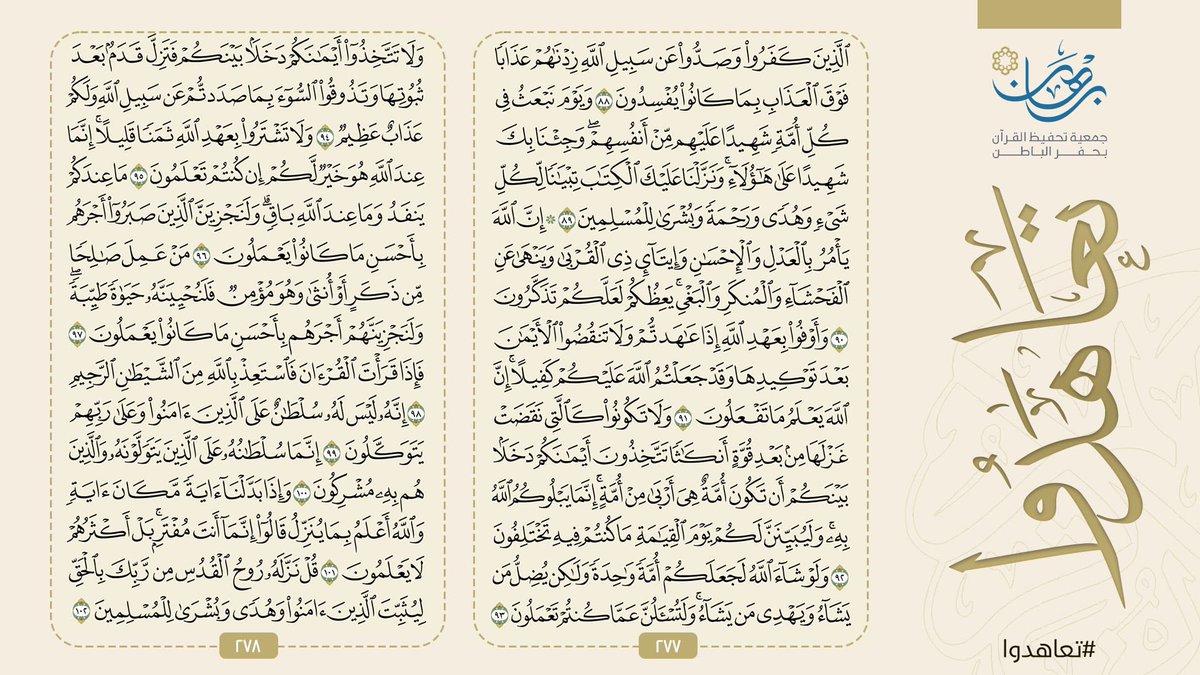 برهان
جمعية تحفيظ القرآن
بحفر الباطن
تعاهدوا
#تعاهدوا
ٱلَّذِينَ كَفَرُوا۟ وَصَدُّوا۟ عَن سَبِيلِ ٱللَّهِ زِدْنَٰهُمْ عَذَابًا
فَوْقَ ٱلْعَذَابِ بِمَا كَانُوا۟ يُفْسِدُونَ ٨٨ وَيَوْمَ نَبْعَثُ فِى
كُلِّ أُمَّةٍ شَهِيدًا عَلَيْهِم مِّنْ أَنفُسِهِمْ ۖ وَجِئْنَا بِكَ
شَهِيدًا عَلَىٰ هَٰٓؤُلَآءِ ۚ وَنَزَّلْنَا عَلَيْكَ ٱلْكِتَٰبَ تِبْيَٰنًا لِّكُلِّ
شَىْءٍ وَهُدًى وَرَحْمَةً وَبُشْرَىٰ لِلْمُسْلِمِينَ ٨٩ ۞ إِنَّ ٱللَّهَ
يَأْمُرُ بِٱلْعَدْلِ وَٱلْإِحْسَٰنِ وَإِيتَآئِ ذِى ٱلْقُرْبَىٰ وَيَنْهَىٰ عَنِ
ٱلْفَحْشَآءِ وَٱلْمُنكَرِ وَٱلْبَغْىِ ۚ يَعِظُكُمْ لَعَلَّكُمْ تَذَكَّرُونَ
٩٠ وَأَوْفُوا۟ بِعَهْدِ ٱللَّهِ إِذَا عَٰهَدتُّمْ وَلَا تَنقُضُوا۟ ٱلْأَيْمَٰنَ
بَعْدَ تَوْكِيدِهَا وَقَدْ جَعَلْتُمُ ٱللَّهَ عَلَيْكُمْ كَفِيلًا ۚ إِنَّ
ٱللَّهَ يَعْلَمُ مَا تَفْعَلُونَ ٩١ وَلَا تَكُونُوا۟ كَٱلَّتِى نَقَضَتْ
غَزْلَهَا مِنۢ بَعْدِ قُوَّةٍ أَنكَٰثًا تَتَّخِذُونَ أَيْمَٰنَكُمْ دَخَلًۢا
بَيْنَكُمْ أَن تَكُونَ أُمَّةٌ هِىَ أَرْبَىٰ مِنْ أُمَّةٍ ۚ إِنَّمَا يَبْلُوكُمُ ٱللَّهُ
بِهِۦ ۚ وَلَيُبَيِّنَنَّ لَكُمْ يَوْمَ ٱلْقِيَٰمَةِ مَا كُنتُمْ فِيهِ تَخْتَلِفُونَ
٩٢ وَلَوْ شَآءَ ٱللَّهُ لَجَعَلَكُمْ أُمَّةً وَٰحِدَةً وَلَٰكِن يُضِلُّ مَن
يَشَآءُ وَيَهْدِى مَن يَشَآءُ ۚ وَلَتُسْـَٔلُنَّ عَمَّا كُنتُمْ تَعْمَلُونَ ٩٣
٢٧٧
وَلَا تَتَّخِذُوٓا۟ أَيْمَٰنَكُمْ دَخَلًۢا بَيْنَكُمْ فَتَزِلَّ قَدَمٌۢ بَعْدَ
ثُبُوتِهَا وَتَذُوقُوا۟ ٱلسُّوٓءَ بِمَا صَدَدتُّمْ عَن سَبِيلِ ٱللَّهِ وَلَكُمْ
عَذَابٌ عَظِيمٌ ٩٤ وَلَا تَشْتَرُوا۟ بِعَهْدِ ٱللَّهِ ثَمَنًا قَلِيلًا ۚ إِنَّمَا
عِندَ ٱللَّهِ هُوَ خَيْرٌ لَّكُمْ إِن كُنتُمْ تَعْلَمُونَ ٩٥ مَا عِندَكُمْ
يَنفَدُ وَمَا عِندَ ٱللَّهِ بَاقٍ ۗ وَلَنَجْزِيَنَّ ٱلَّذِينَ صَبَرُوٓا۟ أَجْرَهُم
بِأَحْسَنِ مَا كَانُوا۟ يَعْمَلُونَ ٩٦ مَنْ عَمِلَ صَٰلِحًا
مِّن ذَكَرٍ أَوْ أُنثَىٰ وَهُوَ مُؤْمِنٌ فَلَنُحْيِيَنَّهُۥ حَيَوٰةً طَيِّبَةً ۖ
وَلَنَجْزِيَنَّهُمْ أَجْرَهُم بِأَحْسَنِ مَا كَانُوا۟ يَعْمَلُونَ ٩٧
فَإِذَا قَرَأْتَ ٱلْقُرْءَانَ فَٱسْتَعِذْ بِٱللَّهِ مِنَ ٱلشَّيْطَٰنِ ٱلرَّجِيمِ
٩٨ إِنَّهُۥ لَيْسَ لَهُۥ سُلْطَٰنٌ عَلَى ٱلَّذِينَ ءَامَنُوا۟ وَعَلَىٰ رَبِّهِمْ
يَتَوَكَّلُونَ ٩٩ إِنَّمَا سُلْطَٰنُهُۥ عَلَى ٱلَّذِينَ يَتَوَلَّوْنَهُۥ وَٱلَّذِينَ
هُم بِهِۦ مُشْرِكُونَ ١٠٠ وَإِذَا بَدَّلْنَآ ءَايَةً مَّكَانَ ءَايَةٍ
وَٱللَّهُ أَعْلَمُ بِمَا يُنَزِّلُ قَالُوٓا۟ إِنَّمَآ أَنتَ مُفْتَرٍۭ ۚ بَلْ أَكْثَرُهُمْ
لَا يَعْلَمُونَ ١٠١ قُلْ نَزَّلَهُۥ رُوحُ ٱلْقُدُسِ مِن رَّبِّكَ بِٱلْحَقِّ
لِيُثَبِّتَ ٱلَّذِينَ ءَامَنُوا۟ وَهُدًى وَبُشْرَىٰ لِلْمُسْلِمِينَ ١٠٢
٢٧٨